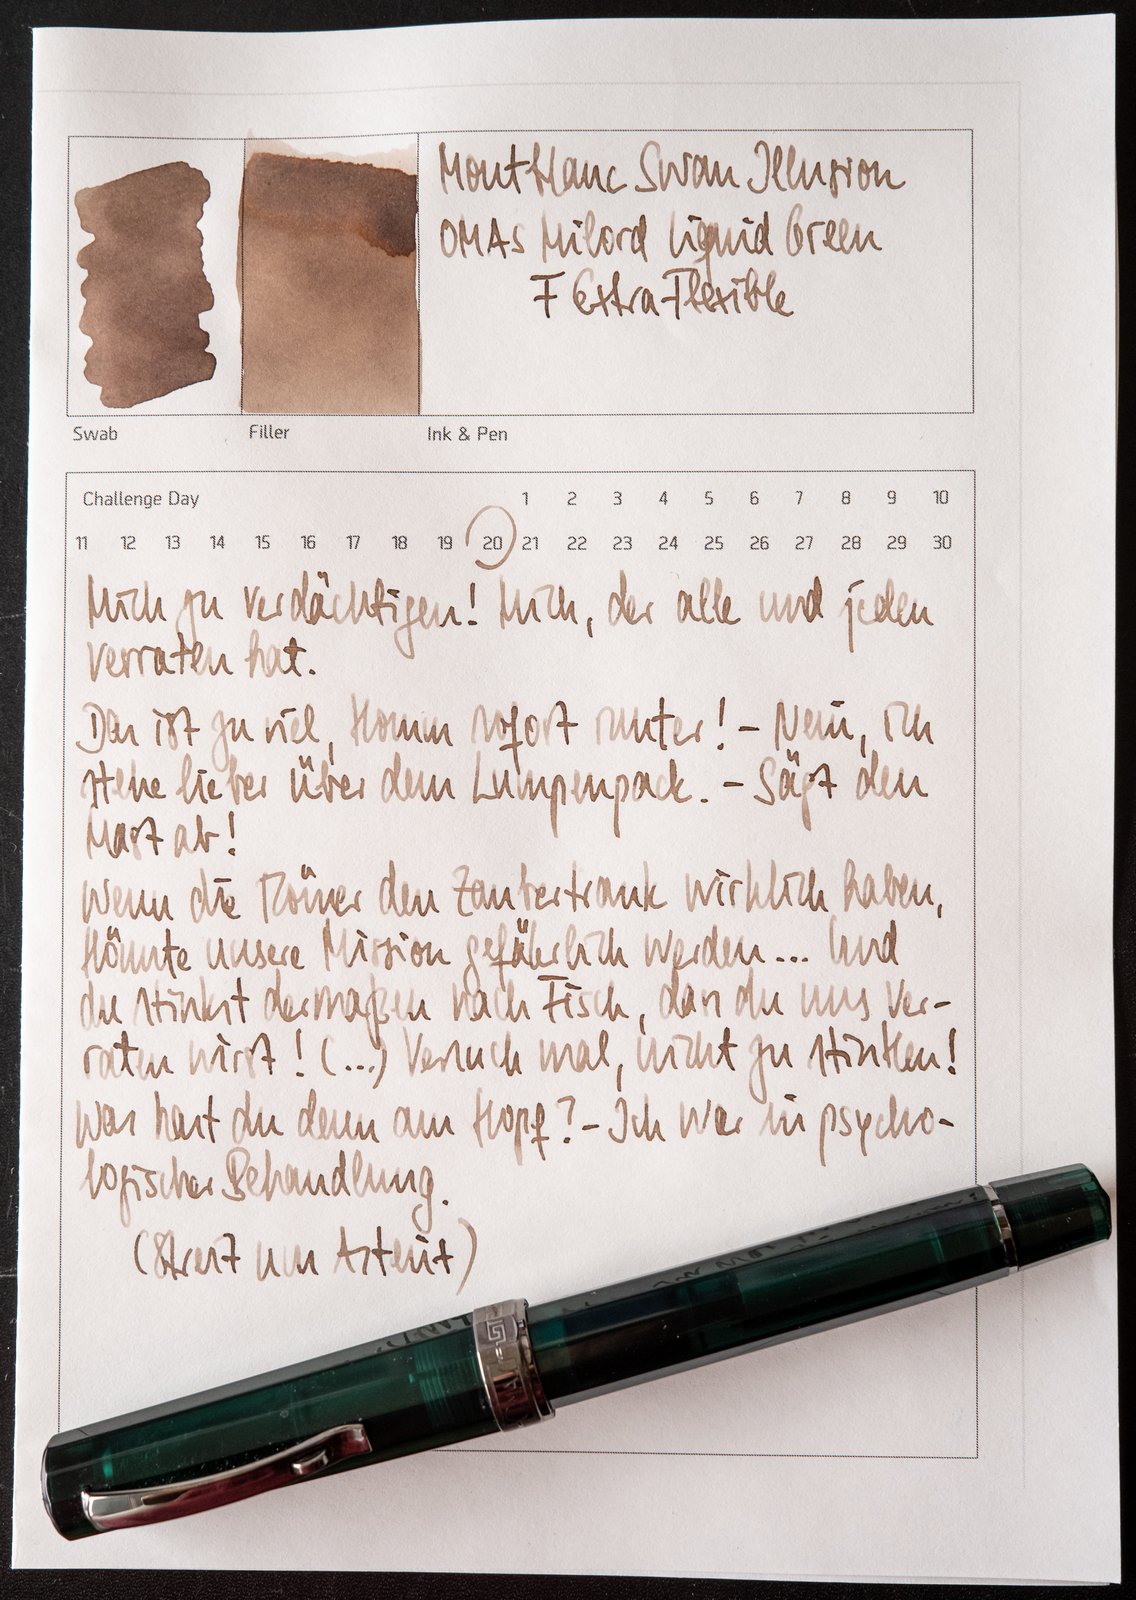 Montblanc Swan Illusion
OMAS Milord Liquid Green
F Extra-Flexible
Swab
Filler
Ink & Pen
Challenge Day 1 2 3 4 5 6 7 8 9 10
11 12 13 14 15 16 17 18 19 20 21 22 23 24 25 26 27 28 29 30
Mich zu verdächtigen! Mich, der alle und jeden
verraten hat.
Das ist zu viel, komm sofort runter! – Nein, ich
stehe lieber über dem Lumpenpack. – Sägt den
Mast ab!
Wenn die Römer den Zaubertrank wirklich haben,
könnte unsere Mission gefährlich werden... Und
du stinkst dermaßen nach Fisch, dass du uns ver-
raten wirst! (...) Versuch mal, nicht zu stinken!
Was hast du denn am Kopf? – Ich war in psycho-
logischer Behandlung.
(Streit um Asterix)